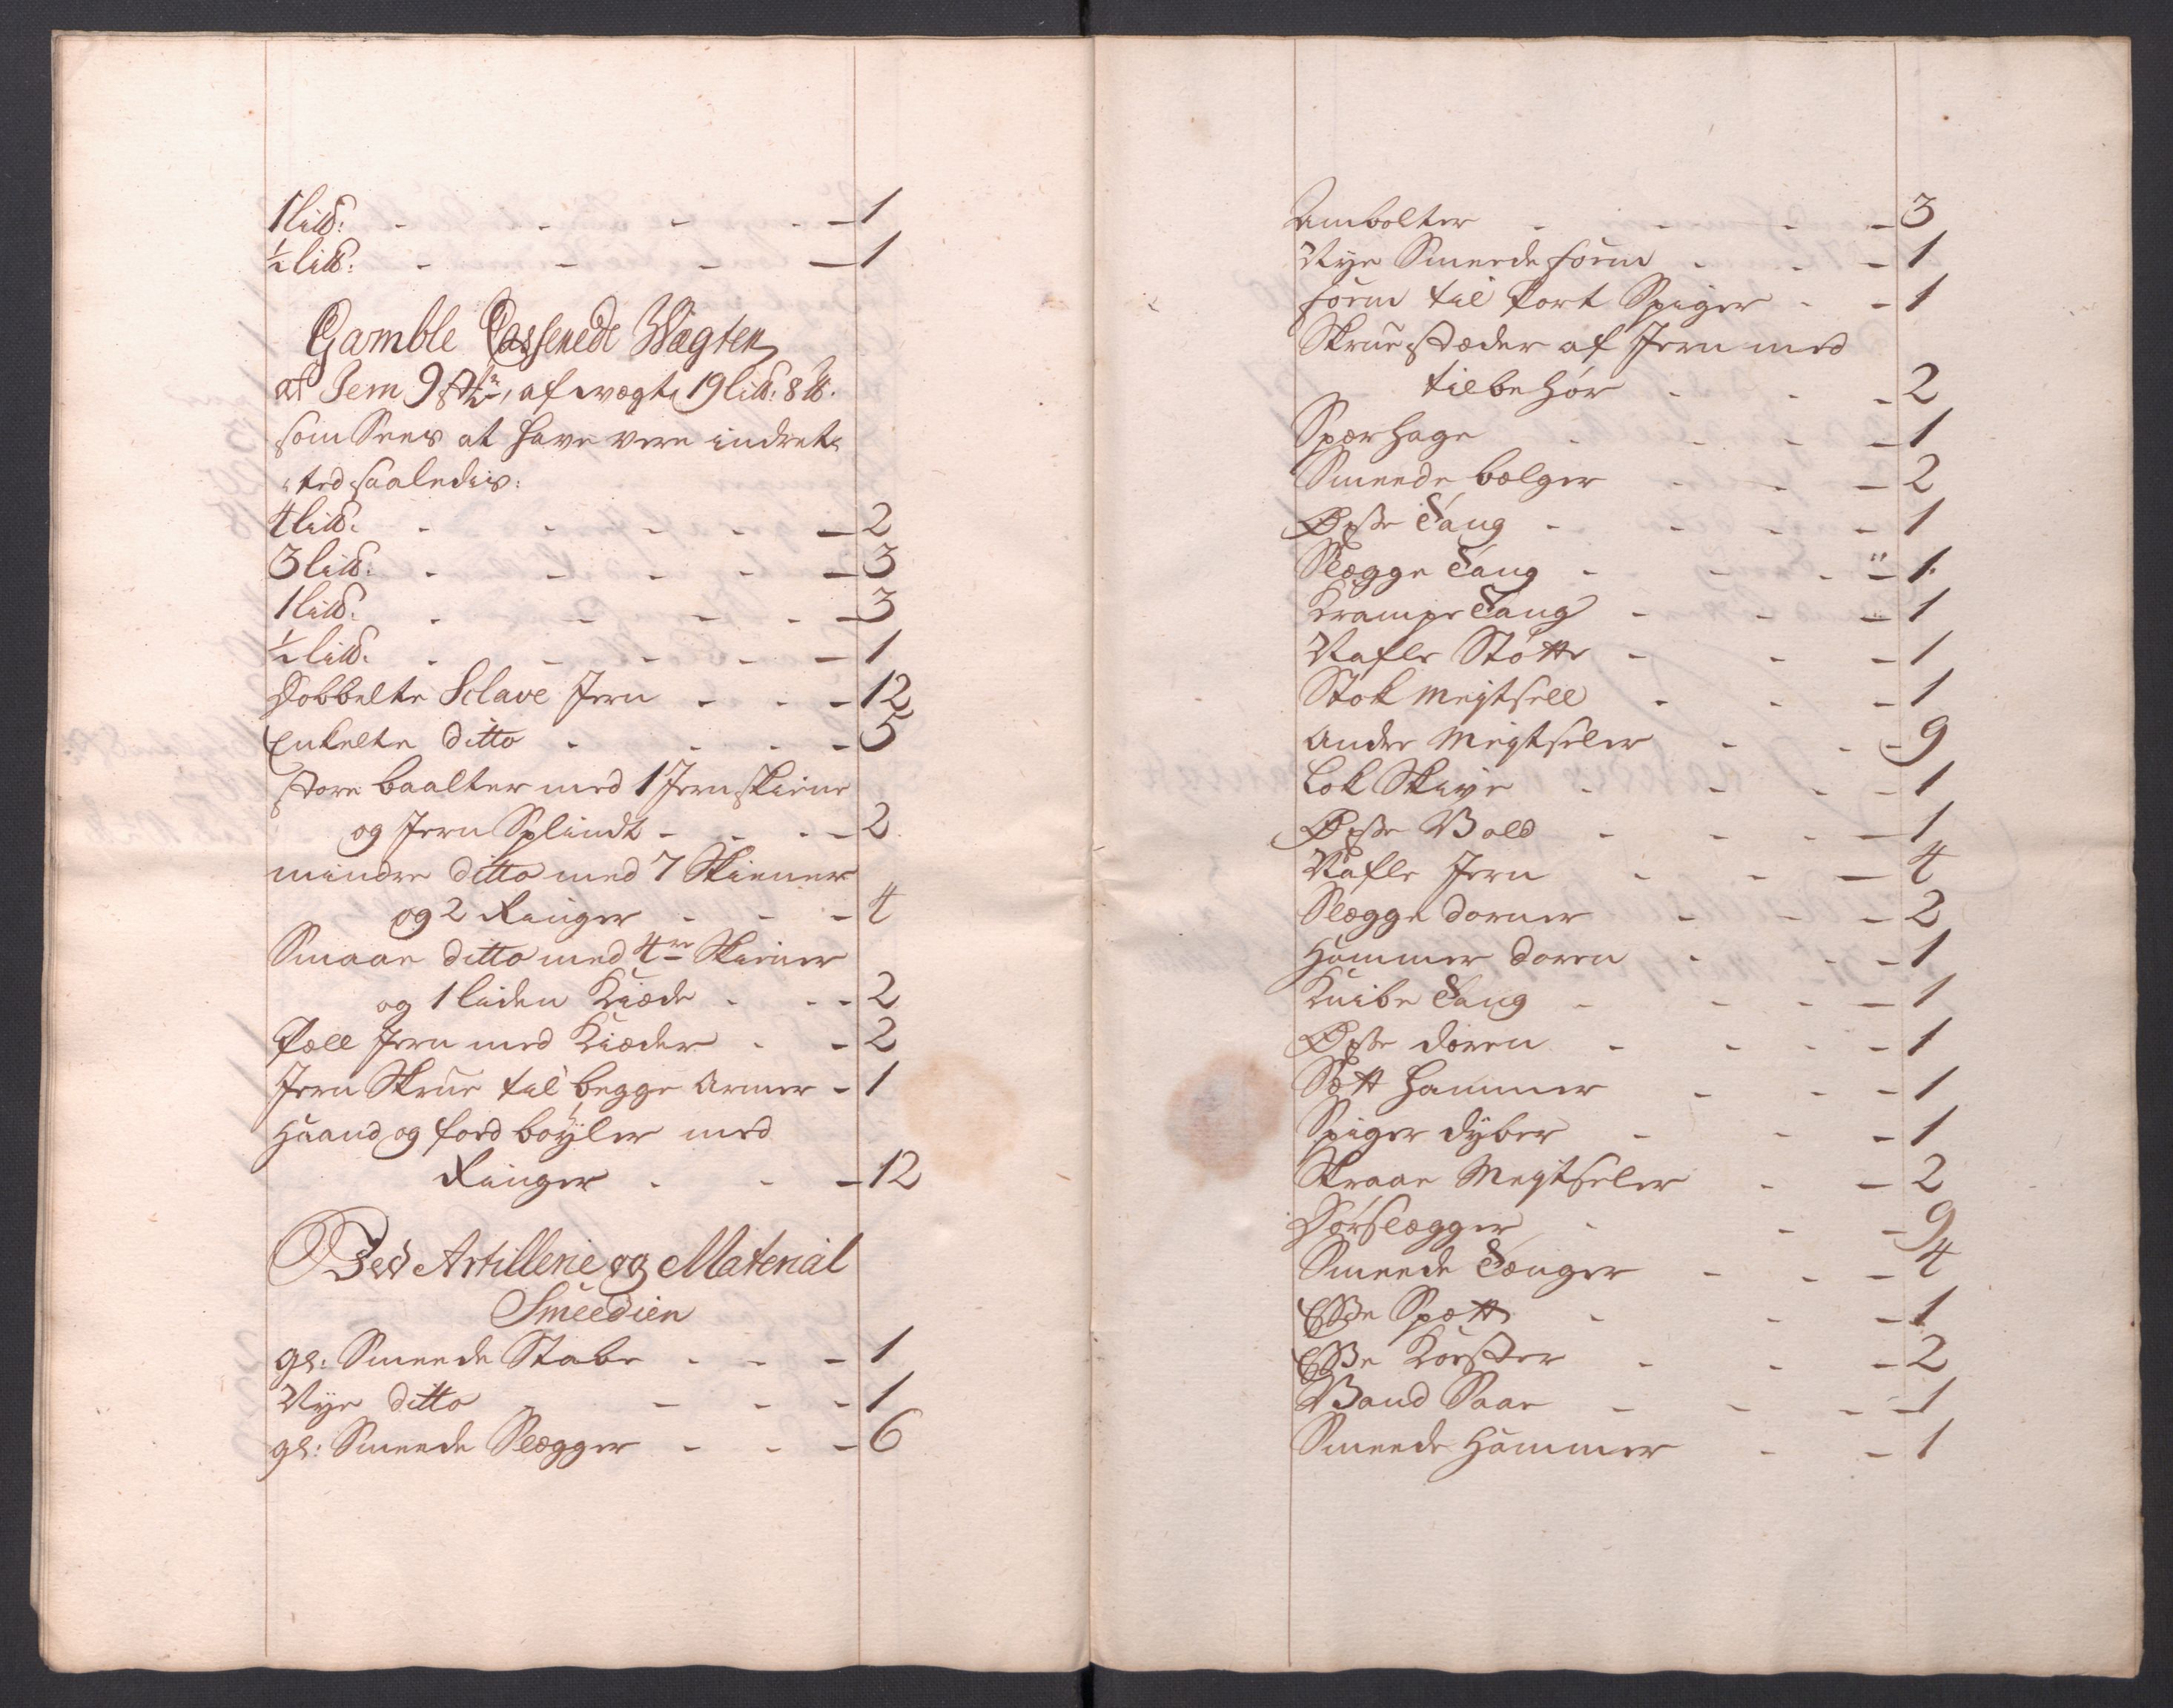 1 lis℔: - - - - 1
½ lis℔: - - - 1
Gamble Casserede Wægten
af Jern 9 stkr, af vægt 19 lis℔: 8 ℔.
som Sees at have vere indret-
ted saaledis:
4 lis℔: - - - - 2
3 lis℔: - - - - 3
1 lis℔: - - - - 3
½ lis℔: - - - - 1
Dobbelte Sclave Jern - - - 12
Enkelte ditto - - - - 5
store baalter med 1 Jern skiene
og Jern Splindt - - - 2
mindre ditto med 7 Skiener
og 2 Ringer - - - 4
Smaae ditto med 4re Skiener
og 1 liden Kiæde - - - 2
Pæll Jern med Kiæder - - 2
Jern Skrue til begge Armer - 1
Haand og Foed bøyler med
Ringer - - - 12
Ved Artillerie og Material
Smeedien
gl: Smeede Stabe - - - 1
Nye ditto - - - - 1
gl: Smeede Slægger - - - 6
Ambolter - - - - 3
Nye Smeede form - - - 1
form til Port Spiger - - 1
Skrue støder af Jern med
tilbehør - - - 2
Sperhage - - - - 1
Smeede bælger - - - 2
Øxse Tang - - - - 1
Slægge Tang - - - - 1
Krampe Tang - - - 1
Nafle Støtte - - - 1
Stok Meytsell - - - 1
Andre Meytseler - - - 9
Lok Skive - - - - 1
Øxse Bold - - - - 1
Nafle Jern - - - 4
Slægge Dorner - - - 2
Hammer Doren - - - 1
Knibe Tang - - - - 1
Øxse Doren - - - - 1
Sætt Hammer - - - 1
Spiger dyber - - - 1
Skraae Meytseler - - 2
Dørslægger - - - 9
Smeede Tænger - - - 4
Esse Spætt - - - 1
Esse Koester - - - 2
Vand Saae - - - - 1
Smeede Hammer - - 1